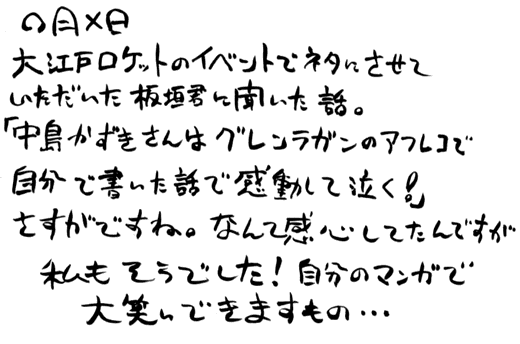 ○月×日
大江戸ロケットのイベントでネタにさせて
いただいた板垣君に聞いた話。
「中島かずきさんはグレンラガンのアフレコで
自分で書いた話で感動して泣く!」
さすがですね。なんて感心してたんですが
私もそうでした!自分のマンガで
大笑いできますもの…